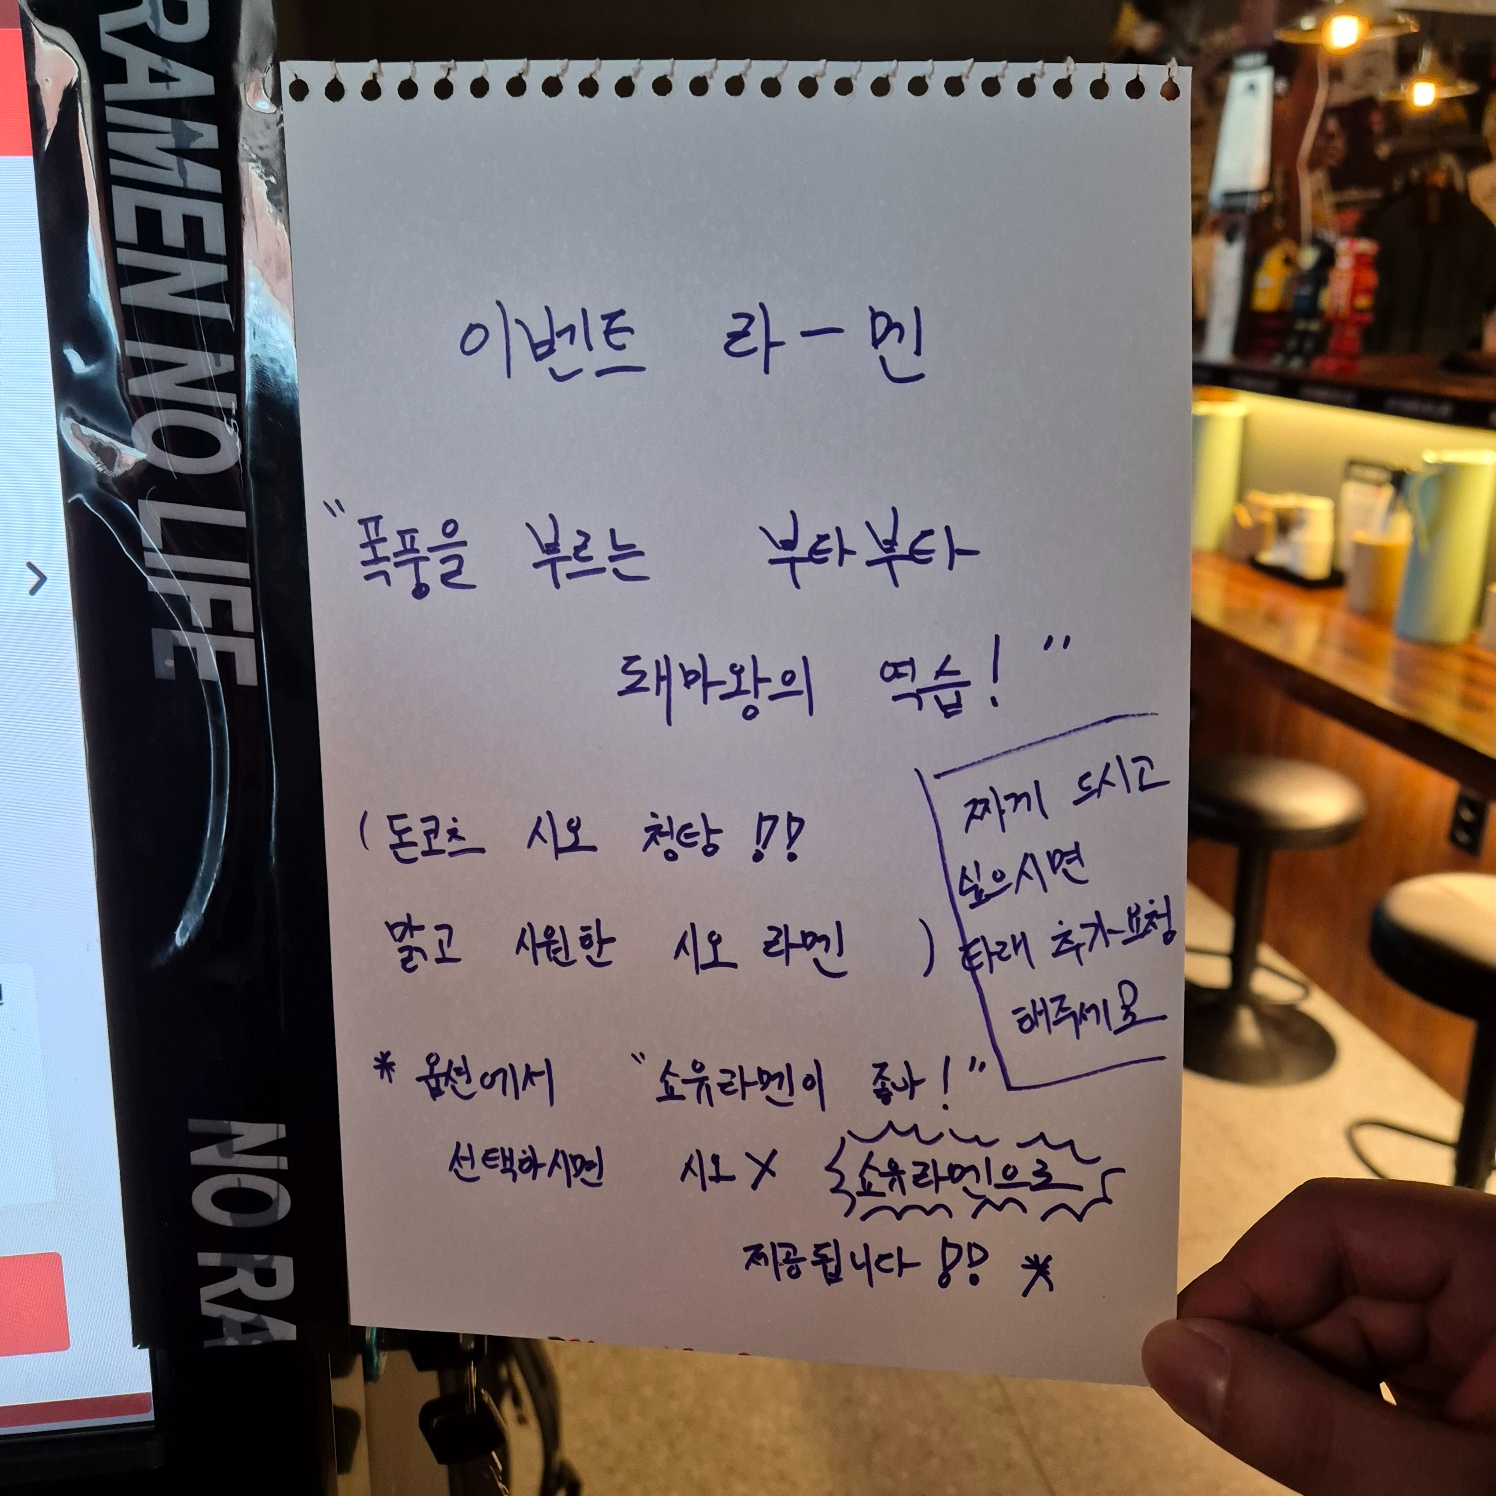 RAMEN NO LIFE
NO RA
이벤트 라-멘
"폭풍을 부르는 부타부타
돼마왕의 역습! "
(돈코츠 시오 청탕 !?!?
맑고 시원한 시오 라멘 )
짜게 드시고
싶으시면
타래 추가요청
해주세요
* 옵션에서 "쇼유라멘이 좋아!"
선택하시면 시오X 쇼유라멘으로
제공됩니다 !! *